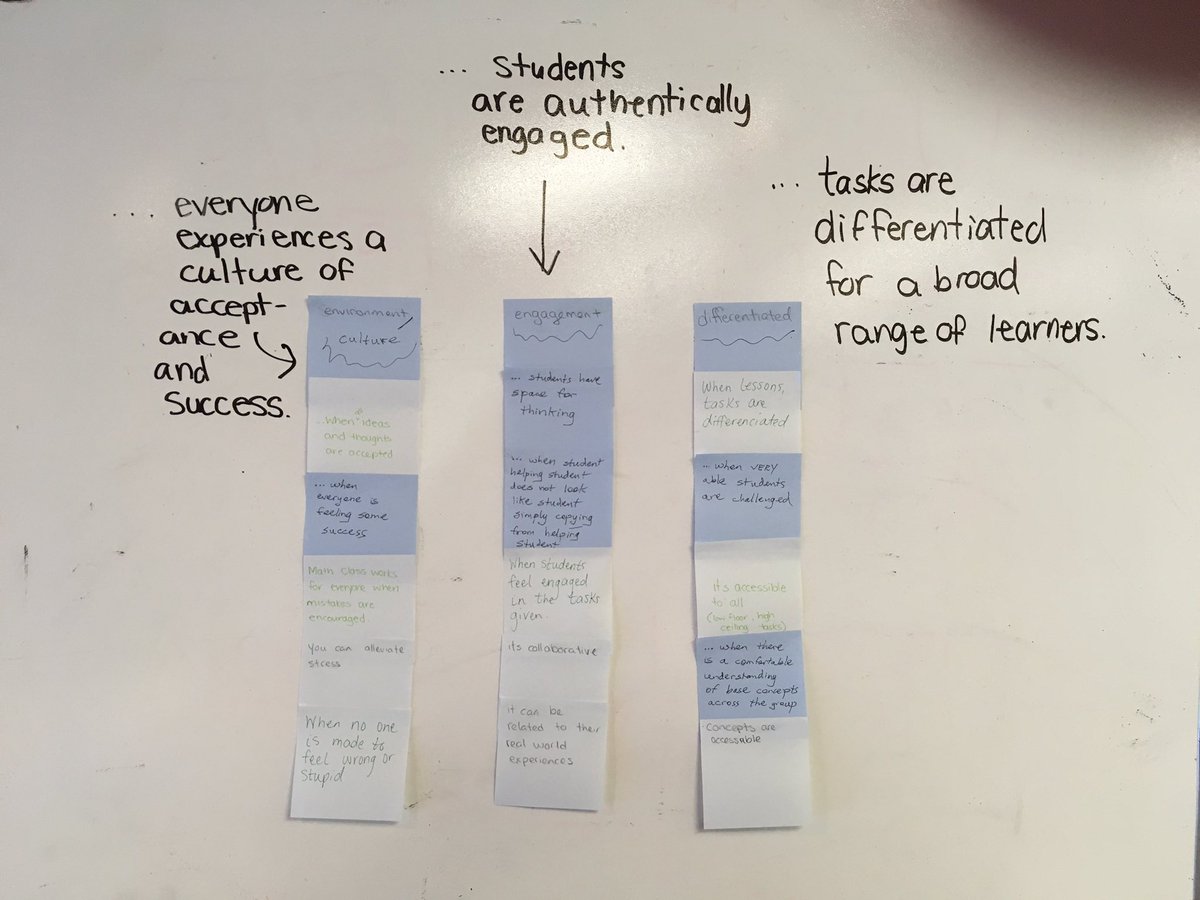 ... Students
are authentically
engaged.
... everyone
experiences a
culture of
accept-
ance
and
success.
... tasks are
differentiated
for a broad
range of learners.
environment/
culture
...when ideas
and thoughts
are accepted
... when
everyone is
feeling some
success
Math Class works
for everyone when
mistakes are
encouraged.
You can alleviate
stress
When no one
is made to
feel wrong or
Stupid
engagement
... students have
space for
thinking
... when student
helping student
does not look
like student
simply copying
from helping
student
When Students
feel engaged
in the tasks
given.
its collaborative
it can be
related to their
real world
experiences
differentiated
When Lessons,
tasks are
differenciated
... when VERY
able students
are challenged
it's accessible
to all
(low floor, high
ceiling tasks)
... when there
is a comfortable
understanding
of base concepts
across the group
Concepts are
accessable